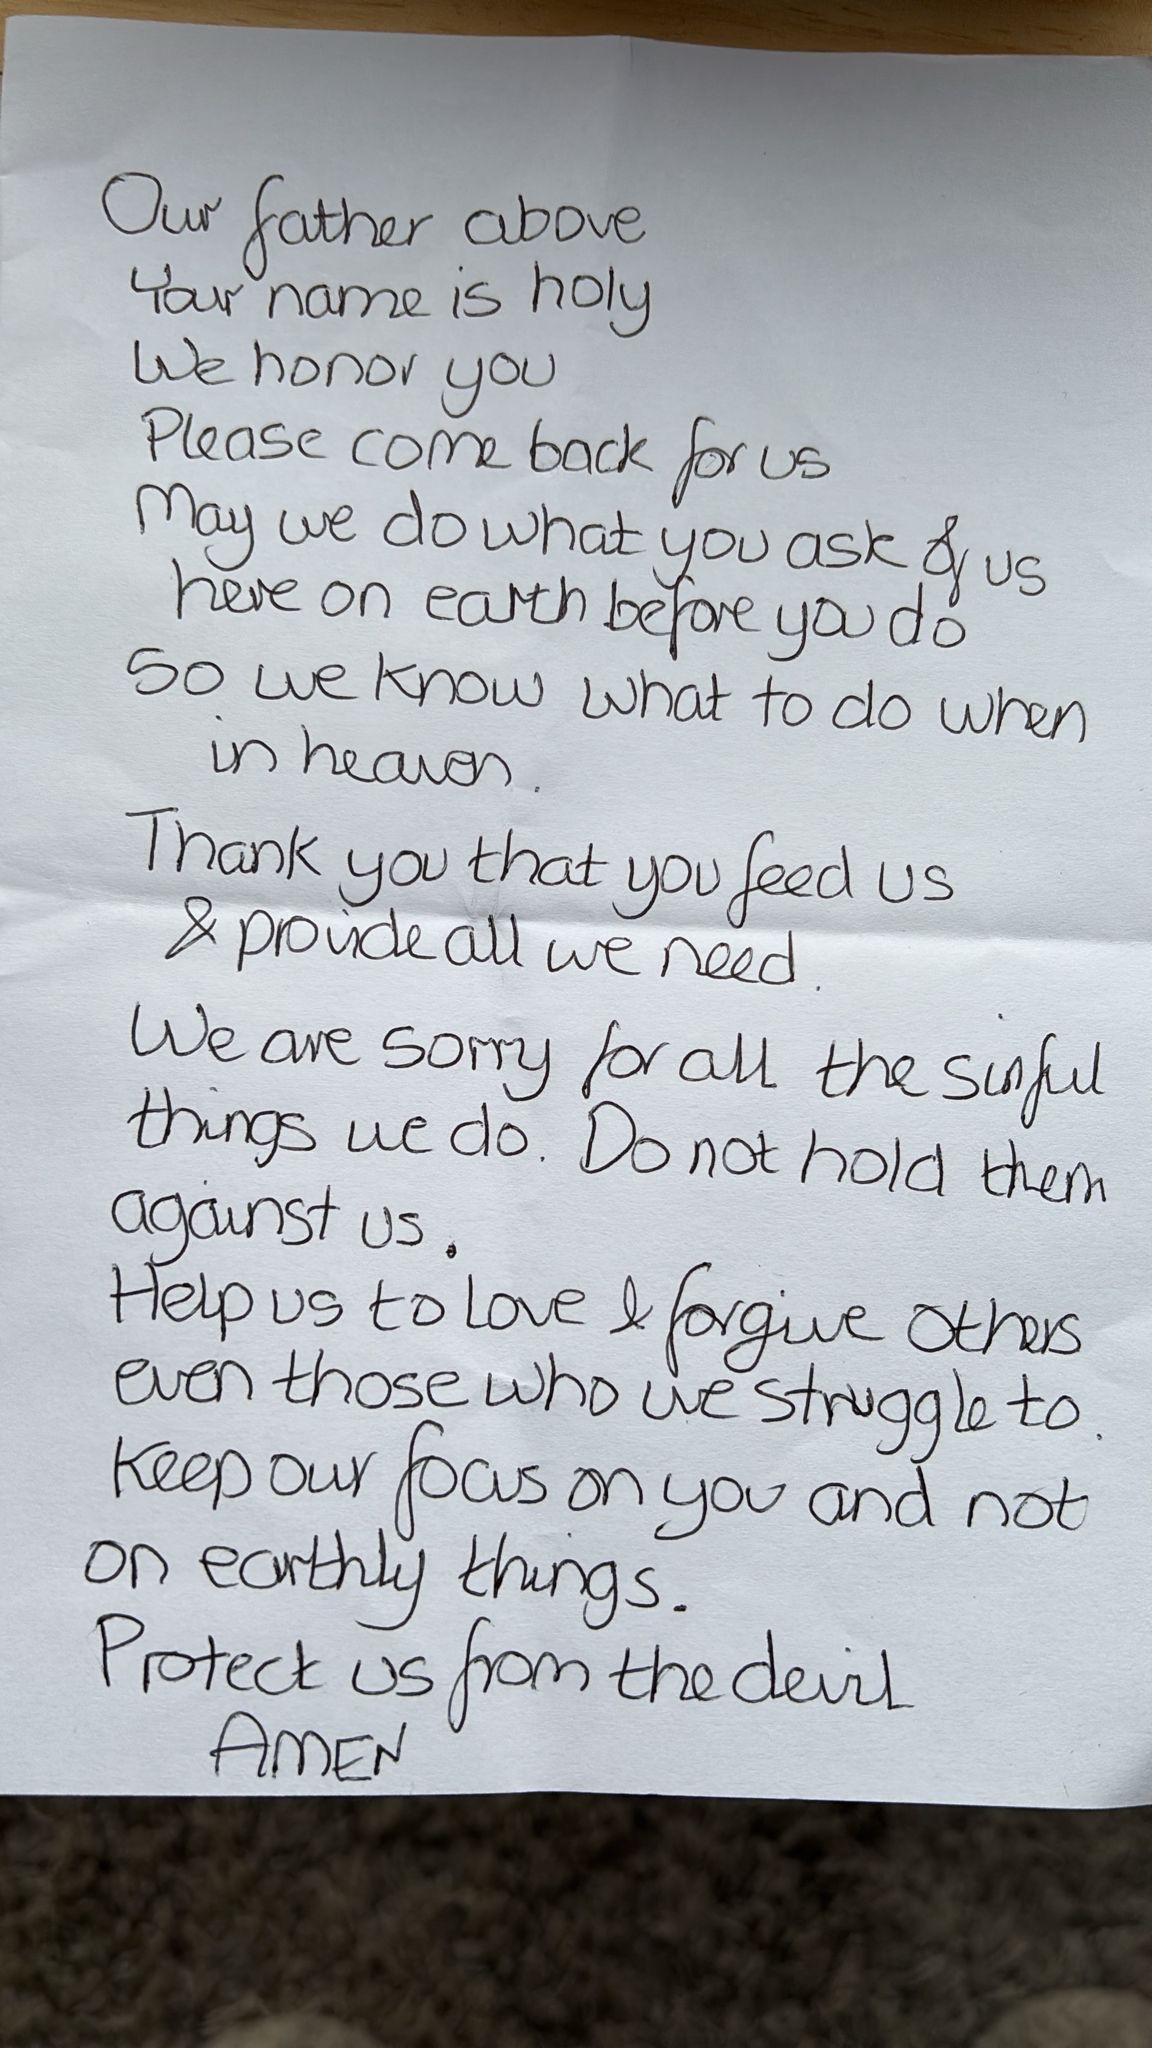 Our father above
Your name is holy
We honor you
Please come back for us
May we do what you ask of us
here on earth before you do
So we know what to do when
in heaven.
Thank you that you feed us
& provide all we need.
We are sorry for all the sinful
things we do. Do not hold them
against us.
Help us to love & forgive others
even those who we struggle to.
Keep our focus on you and not
on earthly things.
Protect us from the devil
AMEN